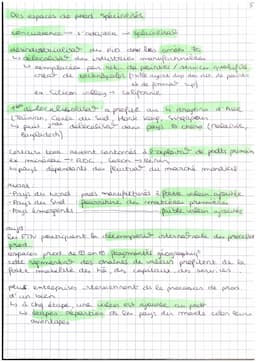 5
Des espaces de prod. spécialisés
concurrence → s'adapter → spécialisat°
désindustrialisat° des PID dans les années 70
↳ délocalisat° des industries manufacturières
↳ remplacées par act. de pointe / service qualifiés
créat° de technopoles
ex: Silicon Valley → Californie
1ère délocalisat° a profité aux 4 dragons d'Asie
(Taiwan, Corée du Sud, Hong Kong, Singapour)
↳ puis 2nde délocalisat° dans pays + (Malaisie,
Bangladesh)
certains sont cantonnés à l'exploitat° de prdts primaires
ex: minerais → RDC, → Bénin
↳ pays dépendants des fluctuat° du marché mondial
- Pays du Nord prdts manufacturés à forte valeur ajoutée
- Pays du Sud fournisseurs des matières premières
- Pays émergents faible valeur ajoutée
aujd:
les FTN pratiquent la décomposit° internat°ale des processus
prod.
espaces prod. de + en + fragmentés géographiq
cette segmentat° des chaînes de valeur profitent de la
forte mobilité des , des capitaux, des services...
plus entreprises interviennent ds le processus de prod.
d'un bien
↳ à chq étape, une valeur est ajoutée au pdt
↳ étapes réparties ds les pays du monde selon leurs
avantages